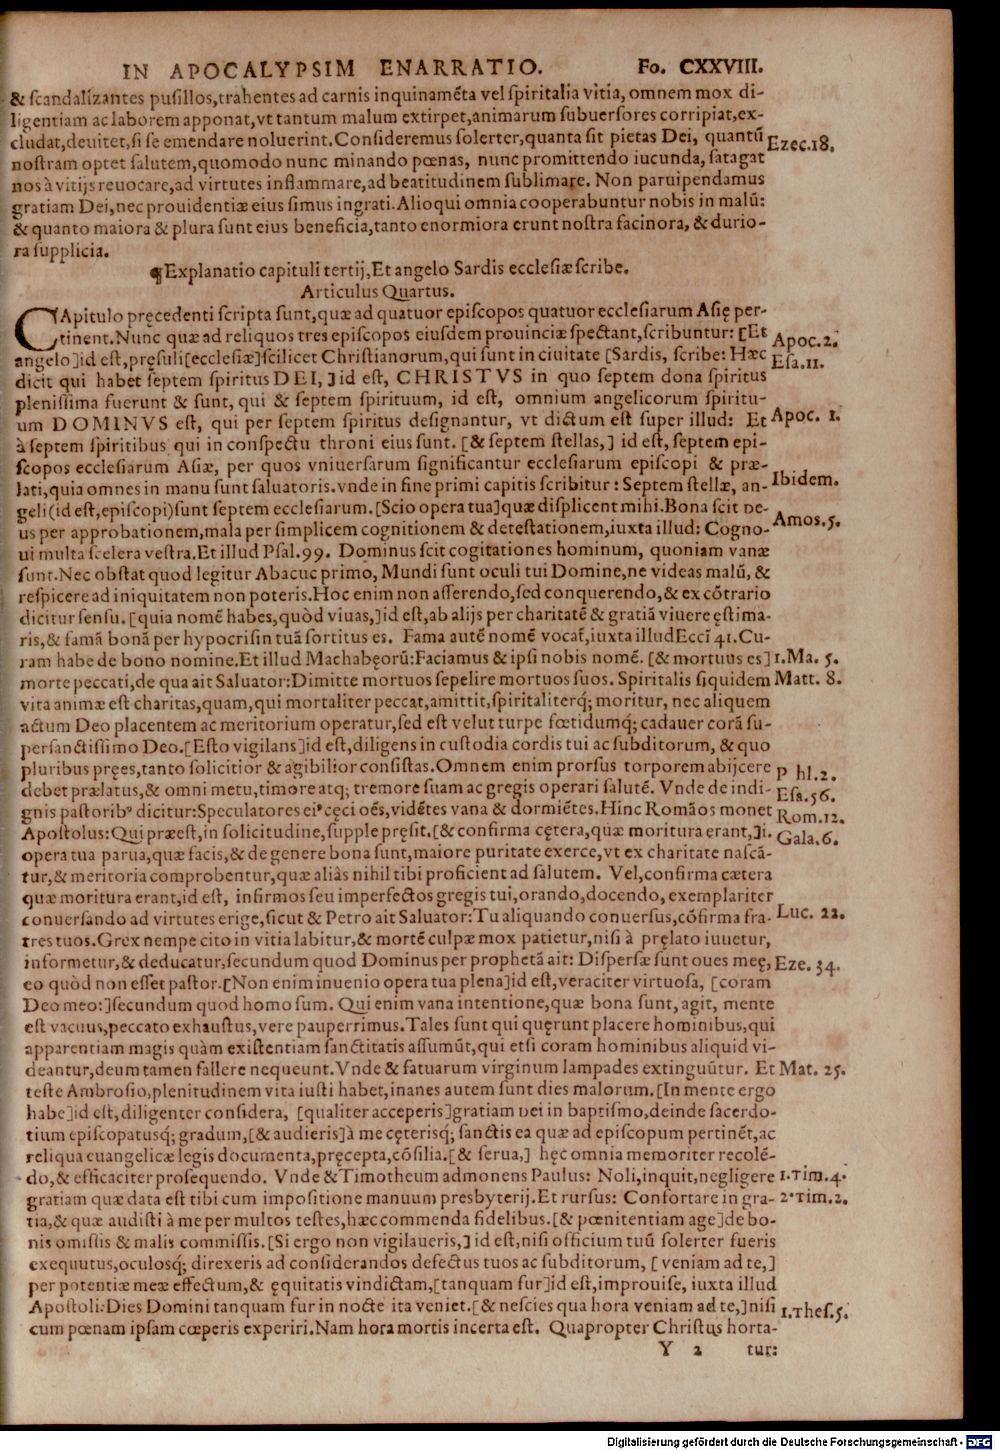 IN APOCALYPSIM ENARRATIO. Fo. CXXVIII.
& scandalizantes pusillos,trahentes ad carnis inquinamẽta vel spiritalia vitia, omnem mox di-
ligentiam ac laborem apponat,vt tantum malum extirpet,animarum subuersores corripiat,ex-
cludat,deuitet,si se emendare noluerint.Consideremus solerter,quanta sit pietas Dei, quantũ Ezec.18.
nostram optet salutem,quomodo nunc minando pœnas, nunc promittendo iucunda, satagat
nos à vitijs reuocare,ad virtutes inflammare,ad beatitudinem sublimare. Non paruipendamus
gratiam Dei,nec prouidentiæ eius simus ingrati.Alioqui omnia cooperabuntur nobis in malũ:
& quanto maiora & plura sunt eius beneficia,tanto enormiora erunt nostra facinora, & durio-
ra supplicia.
¶Explanatio capituli tertij,Et angelo Sardis ecclesiæ scribe.
Articulus Quartus.
CApitulo pręcedenti scripta sunt,quæ ad quatuor episcopos quatuor ecclesiarum Asię per-
tinent.Nunc quæ ad reliquos tres episcopos eiusdem prouinciæ spectant,scribuntur: [Et Apoc.2.
angelo]id est,pręsuli[ecclesiæ]scilicet Christianorum,qui sunt in ciuitate [Sardis, scribe: Hæc Esa.11.
dicit qui habet septem spiritus DEI,] id est, CHRISTVS in quo septem dona spiritus
plenissima fuerunt & sunt, qui & septem spirituum, id est, omnium angelicorum spiritu-
um DOMINVS est, qui per septem spiritus designantur, vt dictum est super illud: Et Apoc. 1.
à septem spiritibus qui in conspectu throni eius sunt. [& septem stellas,] id est, septem epi-
scopos ecclesiarum Asiæ, per quos vniuersarum significantur ecclesiarum episcopi & præ-
lati,quia omnes in manu sunt saluatoris.vnde in fine primi capitis scribitur: Septem stellæ, an- Ibidem.
geli(id est,episcopi)sunt septem ecclesiarum.[Scio opera tua]quæ displicent mihi.Bona scit De-
us per approbationem,mala per simplicem cognitionem & detestationem,iuxta illud: Cogno- Amos.5.
ui multa scelera vestra.Et illud Psal.99. Dominus scit cogitationes hominum, quoniam vanæ
sunt.Nec obstat quod legitur Abacuc primo, Mundi sunt oculi tui Domine,ne videas malũ, &
respicere ad iniquitatem non poteris.Hoc enim non asserendo,sed conquerendo,& ex cõtrario
dicitur sensu.[quia nomẽ habes,quòd viuas,]id est,ab alijs per charitatẽ & gratiã viuere ęstima-
ris,& famã bonã per hypocrisin tuã sortitus es. Fama autẽ nomẽ vocat̃,iuxta illud Ecci̇ 41.Cu-
ram habe de bono nomine.Et illud Machabęorũ:Faciamus & ipsi nobis nomẽ. [& mortuus es] 1.Ma. 5.
morte peccati,de qua ait Saluator:Dimitte mortuos sepelire mortuos suos. Spiritalis siquidem Matt. 8.
vita animæ est charitas,quam,qui mortaliter peccat,amittit,spiritaliterq; moritur, nec aliquem
actum Deo placentem ac meritorium operatur,sed est velut turpe fœtidumq; cadauer corã su-
persanctissimo Deo.[Esto vigilans]id est,diligens in custodia cordis tui ac subditorum, & quo
pluribus pręes,tanto solicitior & agibilior consistas.Omnem enim prorsus torporem abijcere P hl.2.
debet prælatus,& omni metu,timore atq; tremore suam ac gregis operari salutẽ. Vnde de indi- Esa.56.
gnis pastorib⁹ dicitur:Speculatores ei⁹ cęci oẽs,vidẽtes vana & dormiẽtes.Hinc Romãos monet Rom.12.
Apostolus:Qui præest,in solicitudine,supple pręsit.[& confirma cętera,quæ moritura erant,]i. Gala.6.
opera tua parua,quæ facis,& de genere bona sunt,maiore puritate exerce,vt ex charitate nascã-
tur,& meritoria comprobentur,quæ aliàs nihil tibi proficient ad salutem. Vel,confirma cætera
quæ moritura erant,id est, infirmos seu imperfectos gregis tui,orando,docendo, exemplariter
conuersando ad virtutes erige,sicut & Petro ait Saluator:Tu aliquando conuersus,cõfirma fra- Luc. 22.
tres tuos.Grex nempe cito in vitia labitur,& mortẽ culpæ mox patietur,nisi à pręlato iuuetur,
informetur,& deducatur,secundum quod Dominus per prophetã ait: Dispersæ sunt oues meę, Eze. 34.
eo quòd non esset pastor.[Non enim inuenio opera tua plena]id est,veraciter virtuosa, [coram
Deo meo:]secundum quod homo sum. Qui enim vana intentione,quæ bona sunt,agit, mente
est vacuus,peccato exhaustus,vere pauperrimus.Tales sunt qui quęrunt placere hominibus,qui
apparentiam magis quàm existentiam sanctitatis assumũt,qui etsi coram hominibus aliquid vi-
deantur,deum tamen fallere nequeunt.Vnde & fatuarum virginum lampades extinguũtur. Et Mat. 25.
teste Ambrosio,plenitudinem vita iusti habet,inanes autem sunt dies malorum.[In mente ergo
habe]id est,diligenter considera, [qualiter acceperis]gratiam Dei in baptismo,deinde sacerdo-
tium episcopatusq; gradum,[& audieris]à me cęterisq; sanctis ea quæ ad episcopum pertinẽt,ac
reliqua euangelicæ legis documenta,pręcepta,cõsilia.[& serua,] hęc omnia memoriter recolẽ-
do,& efficaciter prosequendo. Vnde & Timotheum admonens Paulus: Noli,inquit,negligere 1.Tim.4.
gratiam quæ data est tibi cum impositione manuum presbyterij.Et rursus: Confortare in gra- 2.Tim.2.
tia,& quæ audisti à me per multos testes,hæc commenda fidelibus.[& pœnitentiam age]de bo-
nis omissis & malis commissis.[Si ergo non vigilaueris,] id est,nisi officium tuũ solerter fueris
exequutus,oculosq; direxeris ad considerandos defectus tuos ac subditorum, [ veniam ad te,]
per potentiæ meæ effectum,& ęquitatis vindictam,[tanquam fur]id est,improuise, iuxta illud
Apostoli:Dies Domini tanquam fur in nocte ita veniet.[& nescies qua hora veniam ad te,]nisi 1.Thes.5.
cum pœnam ipsam cœperis experiri.Nam hora mortis incerta est. Quapropter Christus horta-
Y 2 tur:
Digitalisierung gefördert durch die Deutsche Forschungsgemeinschaft - DFG